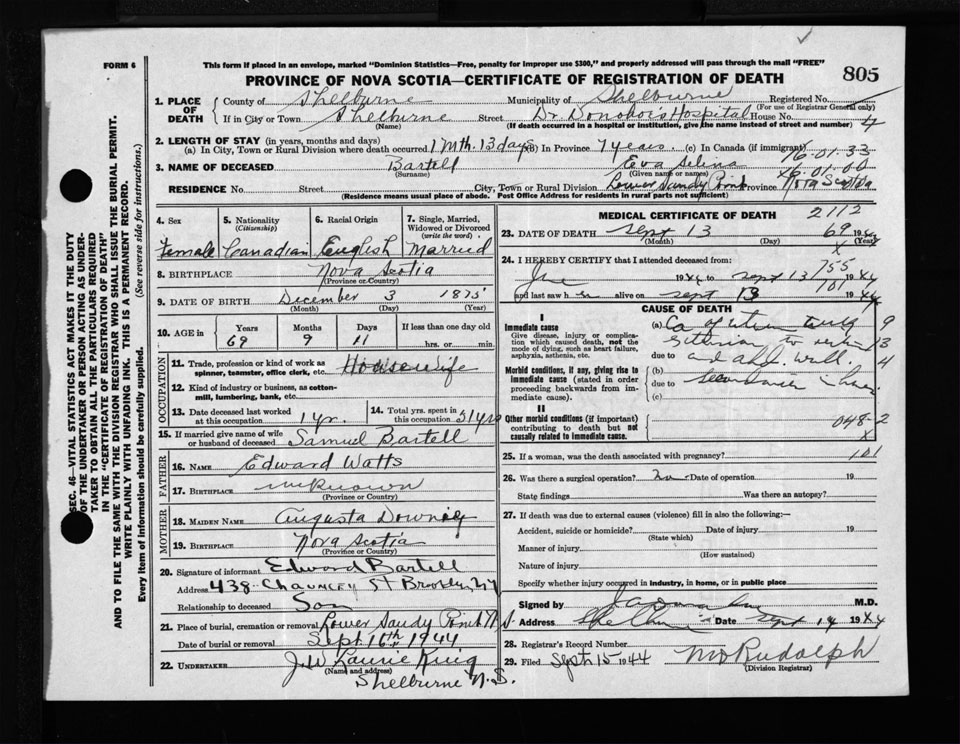 FORM 6
This form if placed in an envelope, marked "Dominion Statistics—Free, penalty for improper use $300," and properly addressed will pass through the mail "FREE"
PROVINCE OF NOVA SCOTIA—CERTIFICATE OF REGISTRATION OF DEATH
805
1. PLACE OF DEATH
County of Shelburne Municipality of Shelburne Registered No.
(For use of Registrar General only)
If in City or Town Shelburne Street Dr Donohoi's Hospital House No. 4
(Name) (If death occurred in a hospital or institution, give the name instead of street and number)
2. LENGTH OF STAY (in years, months and days)
(a) In City, Town or Rural Division where death occurred 1 Mth. 13 days (B) In Province 7 years. (c) In Canada (if immigrant)
16.01.33
3. NAME OF DECEASED Bartell Eva Selina
(Surname) (Given name or names)
RESIDENCE No. Street City, Town or Rural Division Lower Sandy Point Province Nova Scotia
(Residence means usual place of abode. Post Office Address for residents in rural parts not sufficient)
4. Sex
Female
5. Nationality
(Citizenship)
Canadian
6. Racial Origin
English
7. Single, Married, Widowed or Divorced
(write the word)
Married
8. BIRTHPLACE Nova Scotia
(Province or Country)
9. DATE OF BIRTH December 3 1875
(Month) (Day) (Year)
10. AGE in
Years Months Days If less than one day old
69 9 11 hrs. or min.
OCCUPATION
11. Trade, profession or kind of work as spinner, teamster, office clerk, etc. Housewife
12. Kind of industry or business, as cotton-mill, lumbering, bank, etc.
13. Date deceased last worked at this occupation 1 yr.
14. Total yrs. spent in this occupation 51 yrs
15. If married give name of wife or husband of deceased Samuel Bartell
FATHER
16. NAME Edward Watts
17. BIRTHPLACE unknown
(Province or Country)
MOTHER
18. MAIDEN NAME Augusta Downey
19. BIRTHPLACE Nova Scotia
(Province or Country)
20. Signature of informant Edward Bartell
Address 438 Chauncey St Brooklyn, NY
Relationship to deceased Son
21. Place of burial, cremation or removal Lower Sandy Point N
Date of burial or removal Sept. 16th 1944
22. UNDERTAKER J.W. Laurie King
(Name and address)
Shelburne N.S.
MEDICAL CERTIFICATE OF DEATH
2112
23. DATE OF DEATH Sept 13 69 19
(Month) (Day) (Year)
X
24. I HEREBY CERTIFY that I attended deceased from:
755
19 44 to Sept 13 1944
701
and last saw h er alive on Sept 13 1944
CAUSE OF DEATH
I
Immediate cause
Give disease, injury or complication which caused death, not the mode of dying, such as heart failure, asphyxia, asthenia, etc.
(a) Ca of
9
13
due to
4
Morbid conditions, if any, giving rise to immediate cause (stated in order proceeding backwards from immediate cause).
(b)
due to
(c)
II
Other morbid conditions (if important) contributing to death but not causally related to immediate cause.
048-2
X
101
25. If a woman, was the death associated with pregnancy?
26. Was there a surgical operation? no Date of operation 19
State findings Was there an autopsy?
27. If death was due to external causes (violence) fill in also the following:—
Accident, suicide or homicide? Date of injury 19
(State which)
Manner of injury
(How sustained)
Nature of injury
Specify whether injury occurred in industry, in home, or in public place
Signed by M.D.
Address Shelburne Date Sept 14 1944
28. Registrar's Record Number
29. Filed Sept 15 1944 Rudolph
(Division Registrar)
SEC. 46—VITAL STATISTICS ACT MAKES IT THE DUTY OF THE UNDERTAKER OR PERSON ACTING AS UNDERTAKER TO OBTAIN ALL THE PARTICULARS REQUIRED IN THE "CERTIFICATE OF REGISTRATION OF DEATH" AND TO FILE THE SAME WITH THE DIVISION REGISTRAR WHO SHALL ISSUE THE BURIAL PERMIT.
WRITE PLAINLY WITH UNFADING INK. THIS IS A PERMANENT RECORD.
Every item of information should be carefully supplied. (See reverse side for instructions.)